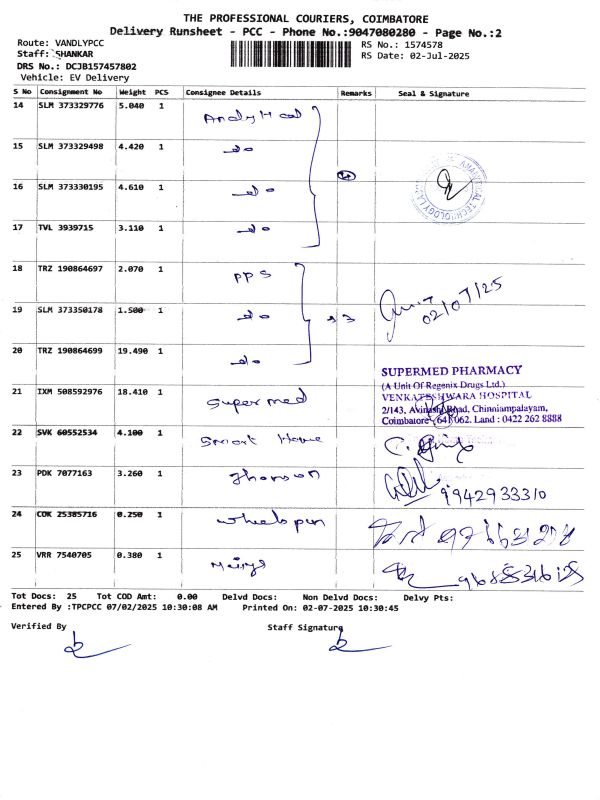 THE PROFESSIONAL COURIERS, COIMBATORE
Delivery Runsheet - PCC - Phone No.:9047080280 - Page No.:2
Route: VANDLYPCC
RS No.: 1574578
Staff: SHANKAR
RS Date: 02-Jul-2025
DRS No.: DCJB157457802
Vehicle: EV Delivery
S No Consignment No Weight PCS Consignee Details Remarks Seal & Signature
14 SLM 373329776 5.040 1
15 SLM 373329498 4.420 1 do
16 SLM 373330195 4.610 1 do
17 TVL 3939715 3.110 1 do
18 TRZ 190864697 2.070 1 PPS
19 SLM 373350178 1.500 1 do 3
02/07/25
20 TRZ 190864699 19.490 1 do
SUPERMED PHARMACY
(A Unit Of Regenix Drugs Ltd.)
VENKATESHWARA HOSPITAL
2/143, Avinashi Road, Chinniampalayam,
Coimbatore (641 062. Land : 0422 262 8888
21 IXM 508592976 18.410 1 Supermed
22 SVK 60552534 4.100 1 Smart Home
23 PDK 7077163 3.260 1 9942933310
24 COK 25385716 0.250 1 wheelspun
25 VRR 7540705 0.380 1
Tot Docs: 25 Tot COD Amt: 0.00 Delvd Docs: Non Delvd Docs: Delvy Pts:
Entered By :TPCPCC 07/02/2025 10:30:08 AM Printed On: 02-07-2025 10:30:45
Verified By Staff Signature